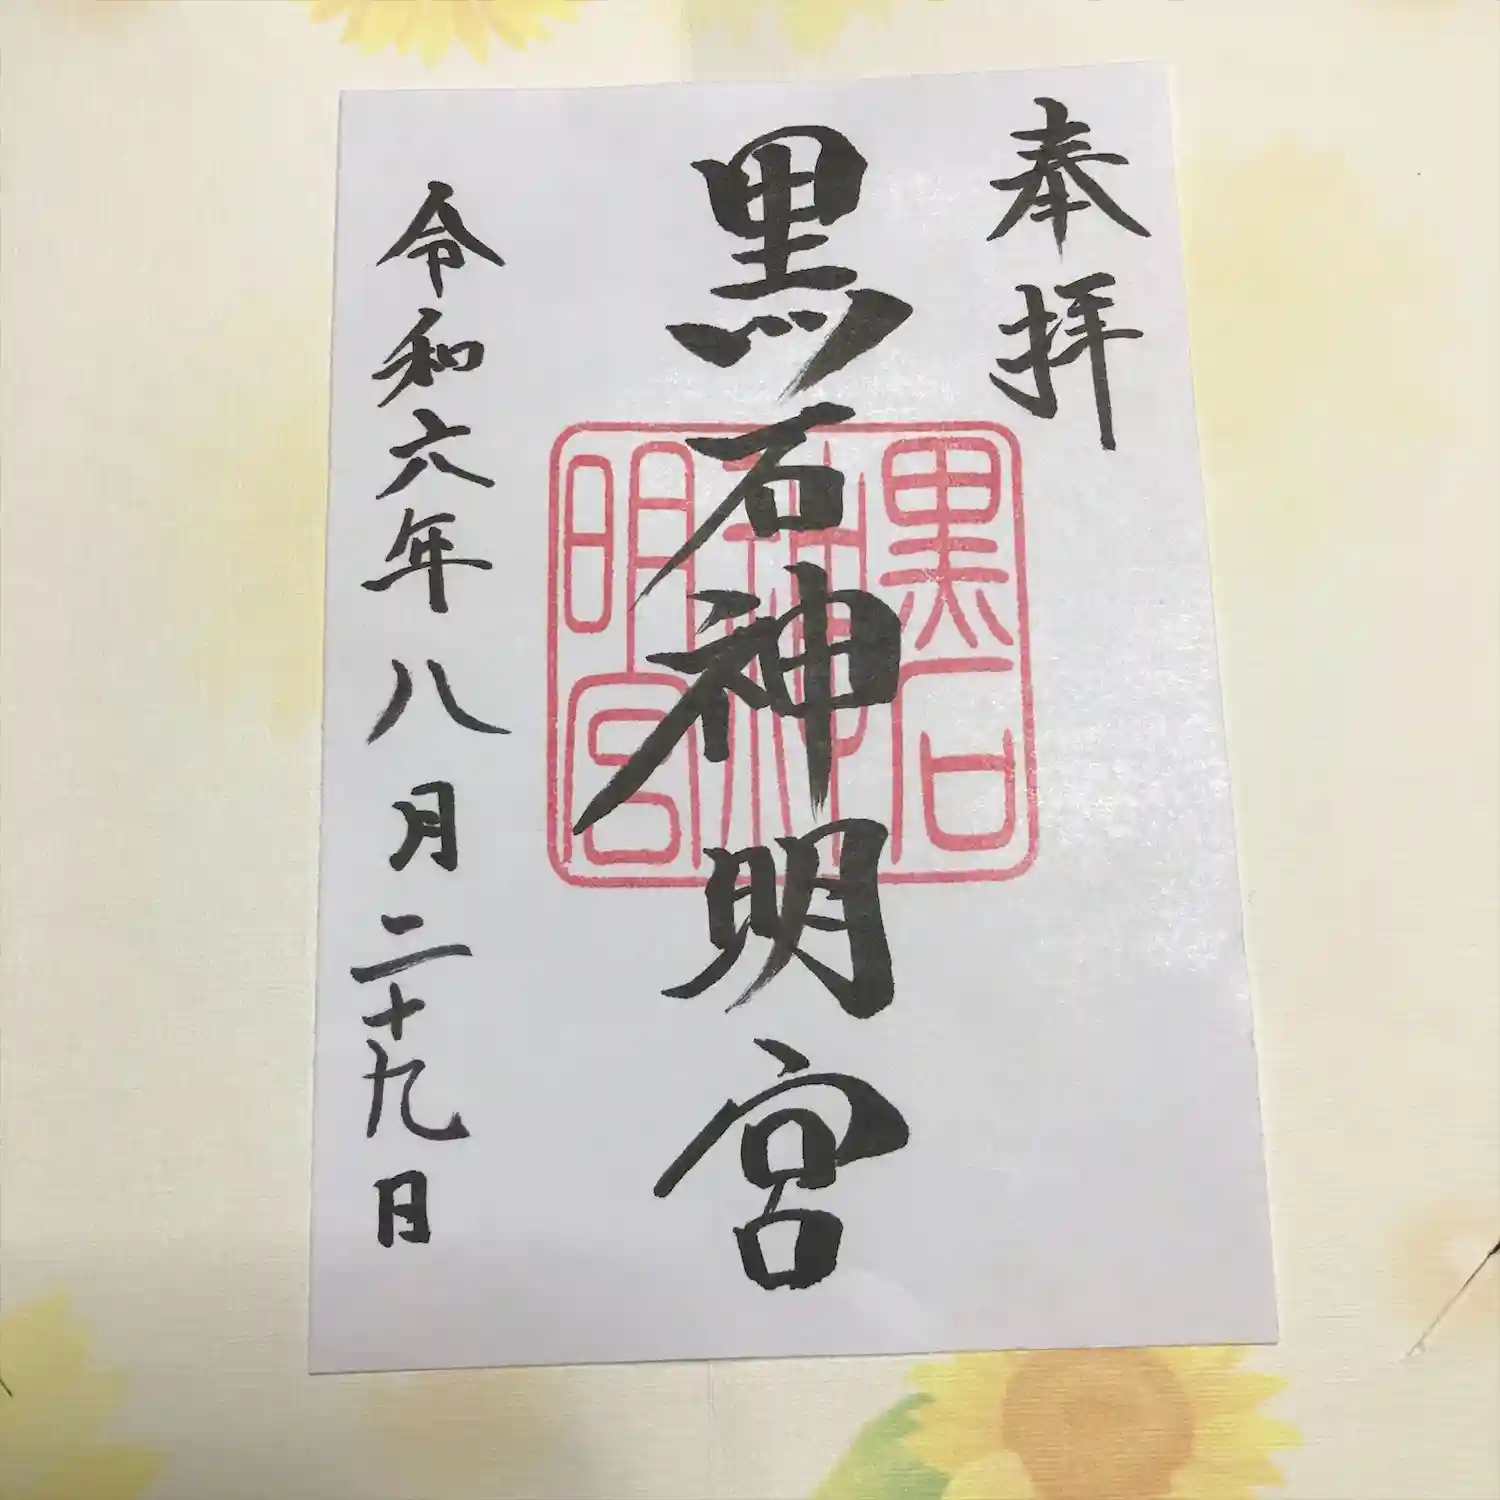 奉拝
黒石神明宮
黒石
神
明宮
令和六年八月二十九日